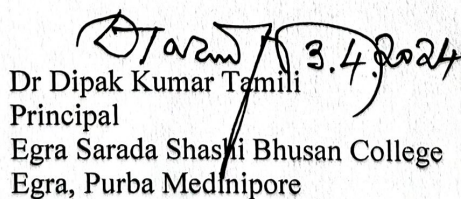 3.4.2024
Dr Dipak Kumar Tamili
Principal
Egra Sarada Shashi Bhusan College
Egra, Purba Medinipore